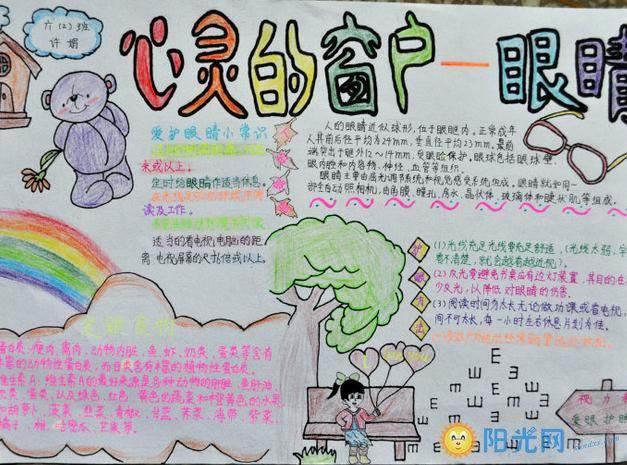 六(2)班
许娟
心灵的窗户一眼睛
爱护眼睛小常识
来或以上;
定时给眼睛作适当休息。
读及工作。
适当的看电视,电脑的距
离:电视屏幕的尺
人的眼睛近似球形,位于眼眶内。正常成年
人其前后径平均为24mm,垂直径平均23mm。最前
端突出于眶外12~14mm,受眼睑保护。眼球包括眼球壁、
眼内腔和内容物、神经、血管等组织。
眼睛主要由屈光调节系统和视觉感受系统组成。眼睛就如同一
部全自动照相机,由角膜、瞳孔、房水、晶状体、玻璃体和睫状肌等组成。
护
眼
方
法
(1)光线充足光线要充足舒适,(光线太弱,字
看不清楚,就会越看越近视)。
(2)反光要避免书桌应有边灯装置,其目的在
少反光,以降低对眼睛的伤害。
(3)阅读时间勿太长无论做功课或看电视,
间不可太长,每一小时左右休息片刻为佳。
爱眼食物
蛋白质:瘦肉、禽肉、动物内脏、鱼、虾、奶类、蛋类等含有
丰富的动物性蛋白质,而豆类含有丰富的植物性蛋白质。
维生素A:维生素A的最好来源是各种动物的肝脏、鱼肝油
胡萝卜、菠菜、韭菜、青椒、甘蓝、荠菜、海带、紫菜、
橘子、柑、哈密瓜、芒果等。
I Love You
视力
爱眼护眼
阳光网